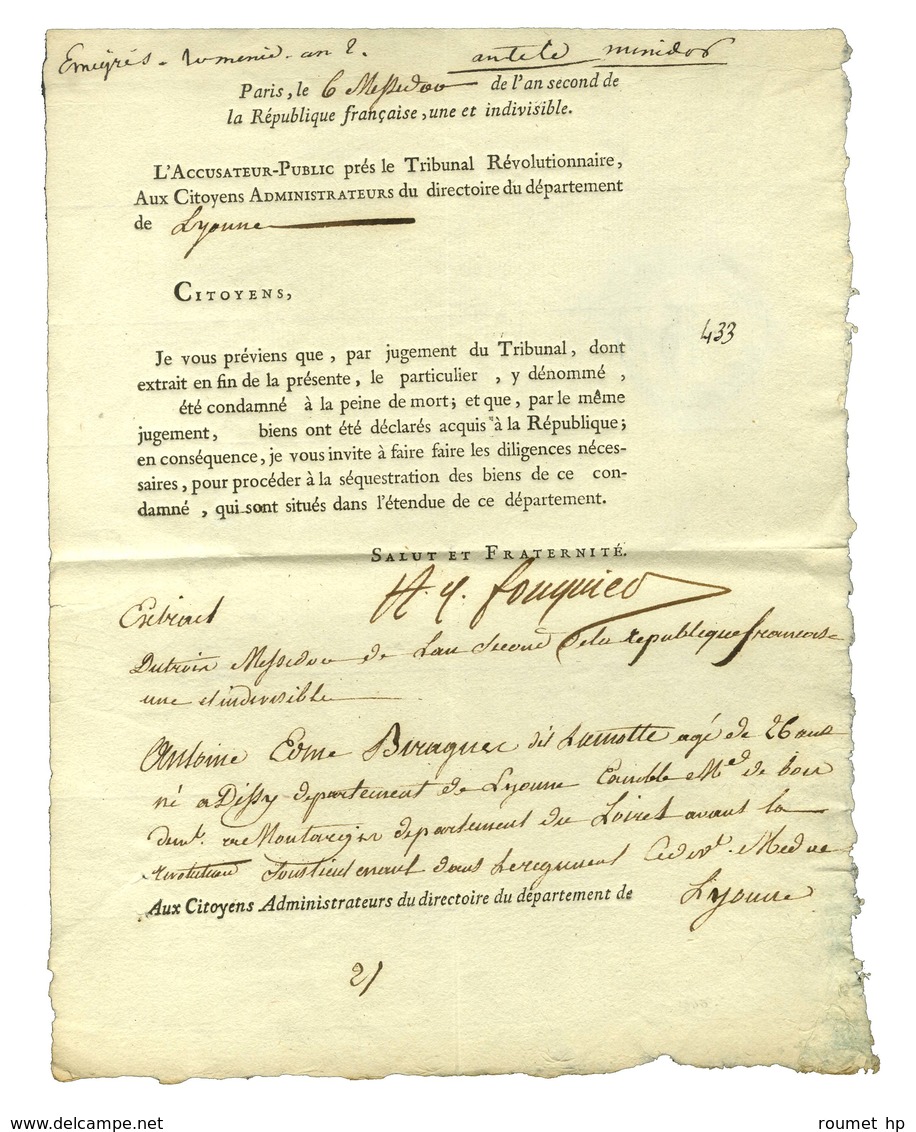 Emigrés - an 2.
Paris, le 6 Messidor de l'an second de
la République française, une et indivisible.
L'Accusateur-Public prés le Tribunal Révolutionnaire,
Aux Citoyens Administrateurs du directoire du département
de Lyonne
Citoyens,
433
Je vous préviens que, par jugement du Tribunal, dont
extrait en fin de la présente, le particulier , y dénommé ,
été condamné à la peine de mort; et que, par le même
jugement, biens ont été déclarés acquis à la République;
en conséquence, je vous invite à faire faire les diligences néces-
saires, pour procéder à la séquestration des biens de ce con-
damné , qui sont situés dans l'étendue de ce département.
Salut et Fraternité.
A. q. fouquier
Extrait
Dutrois Messidor de Lan Second dela republique francois
une et indivisible
Antoine Edme dit Lamotte agé de 26 ans
né a Dissy departement de Lyonne Md de bois
demt. a Montargis departement du Loiret avant la
revolution Souslieutenant dans Leregiment
Aux Citoyens Administrateurs du directoire du département de Lyonne
21
roumet hp